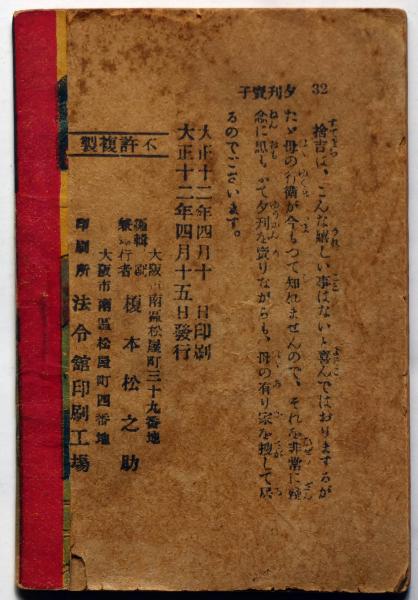 32 夕刊賣子
捨吉は、こんな嬉しい事はないと喜んではおりまするが
たゞ母の行衞が今もつて知れませんので、それを非常に殘
念に思もつて夕刊を賣りながらも、母の有り家を捜して居
るのでございます。
大正十二年四月十日印刷
大正十二年四月十五日發行
不許複製
大阪市南區松屋町三十九番地
編輯兼發行者 榎本松之助
大阪市南區松屋町四番地
印刷所 法令舘印刷工場